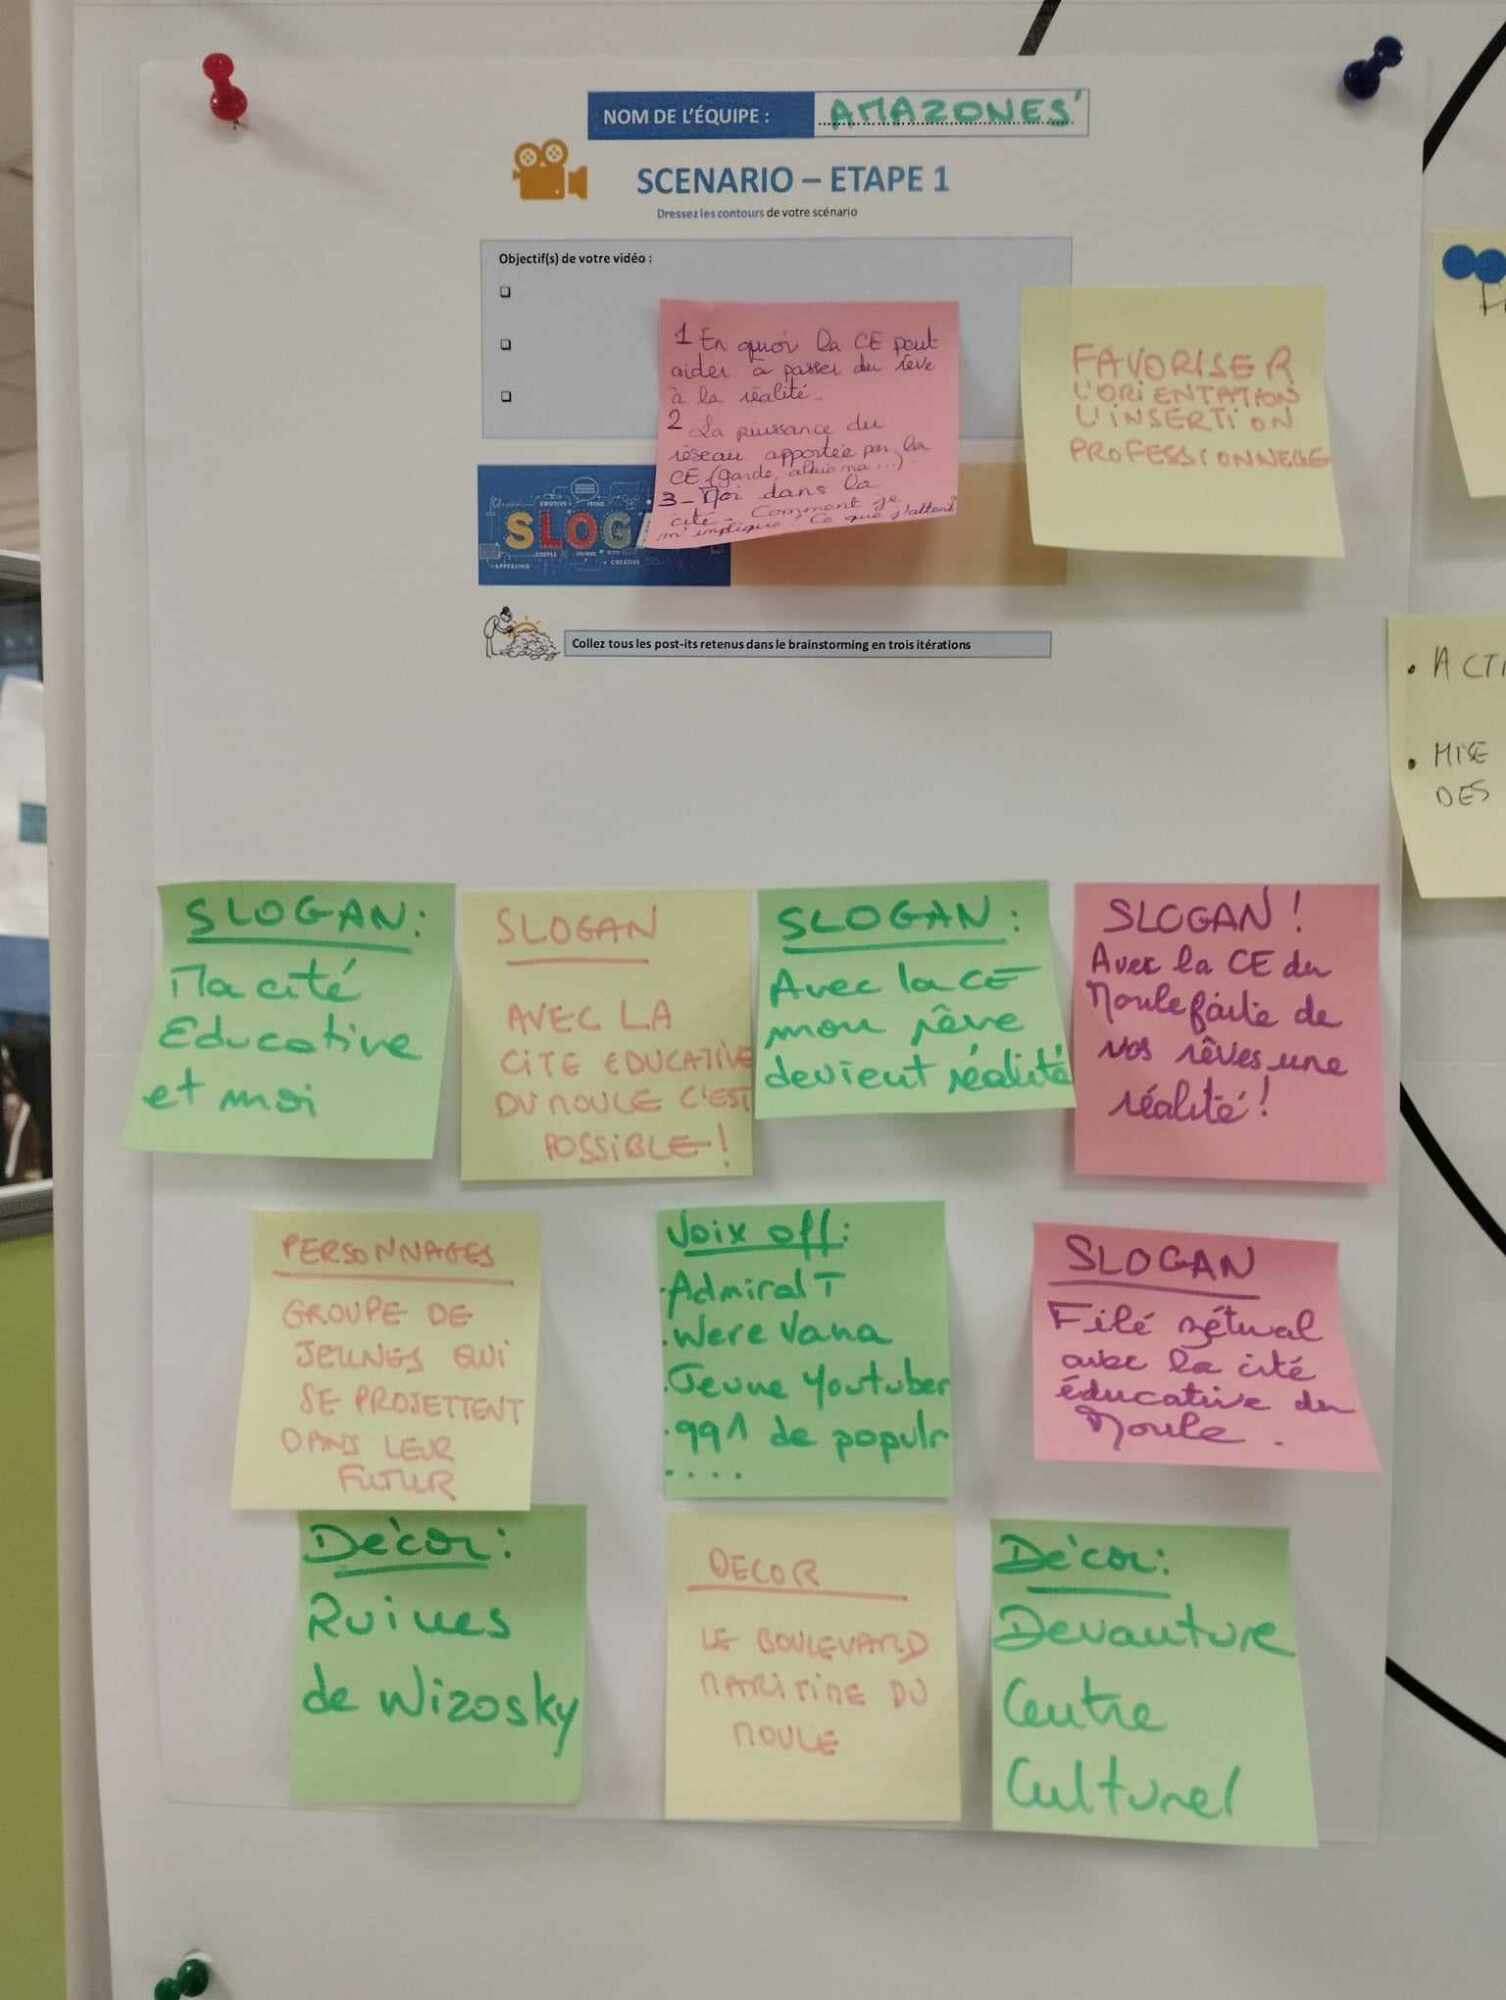 NOM DE L'ÉQUIPE : AMAZONES'
SCENARIO – ETAPE 1
Dressez les contours de votre scénario
Objectif(s) de votre vidéo :
1 En quoi la CE peut
aider à passer du rêve
à la réalité.
2 La puissance du
réseau apportée par la
CE (garde,
3 - Moi dans la
cité. Comment je
m'implique? Ce que j'attend?
FAVORISER
L'ORIENTATION
L'INSERTION
PROFESSIONNELLE
SLOG
CREATIVE
APPEALING
Collez tous les post-its retenus dans le brainstorming en trois itérations
• ACTI
• MISE
DES
SLOGAN:
Ma cité
Educative
et moi
SLOGAN
AVEC LA
CITE EDUCATIVE
DU MOULE C'EST
POSSIBLE!
SLOGAN:
Avec la CE
mon rêve
devient réalité
SLOGAN!
Avec la CE du
Moule faite de
vos rêves une
réalité!
PERSONNAGES
GROUPE DE
JEUNES QUI
SE PROJETTENT
DANS LEUR
FUTUR
Voix off:
.Admiral T
.Were Vana
.Jeune Youtuber
.991 de populr
....
SLOGAN
Filé zétwal
avec la cité
éducative du
Moule.
Décor:
Ruines
de Wizosky
DECOR
LE BOULEVARD
MARITIME DU
MOULE
Décor:
Devanture
Centre
Culturel